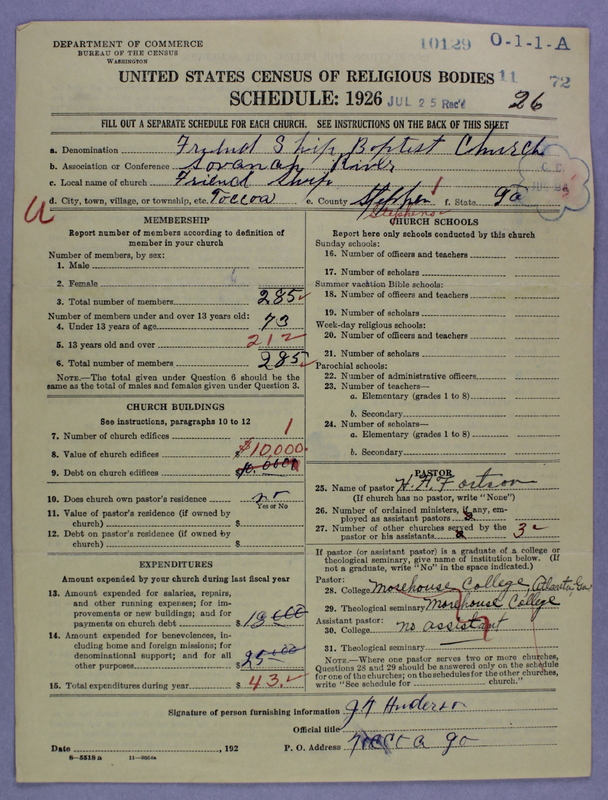 DEPARTMENT OF COMMERCE
BUREAU OF THE CENSUS
WASHINGTON
10129 O-1-1-A
UNITED STATES CENSUS OF RELIGIOUS BODIES 11 72
SCHEDULE: 1926 JUL 25 Rec'd 26
FILL OUT A SEPARATE SCHEDULE FOR EACH CHURCH. SEE INSTRUCTIONS ON THE BACK OF THIS SHEET
a. Denomination Friend Ship Baptest Church
b. Association or Conference Sovanah River
c. Local name of church Friend Ship
d. City, town, village, or township, etc. Toccoa e. County Stephen f. State ga
Stephens
U
MEMBERSHIP
Report number of members according to definition of
member in your church
Number of members, by sex:
1. Male
2. Female
3. Total number of members 285
Number of members under and over 13 years old:
4. Under 13 years of age 73
5. 13 years old and over 212
6. Total number of members 285
NOTE.—The total given under Question 6 should be the
same as the total of males and females given under Question 3.
CHURCH BUILDINGS
See instructions, paragraphs 10 to 12
7. Number of church edifices 1
8. Value of church edifices $10,000.
9. Debt on church edifices
10. Does church own pastor's residence no
Yes or No
11. Value of pastor's residence (if owned by
church) $
12. Debt on pastor's residence (if owned by
church) $
EXPENDITURES
Amount expended by your church during last fiscal year
13. Amount expended for salaries, repairs,
and other running expenses; for im-
provements or new buildings; and for
payments on church debt $
14. Amount expended for benevolences, in-
cluding home and foreign missions; for
denominational support; and for all
other purposes $
15. Total expenditures during year $ 43.
CHURCH SCHOOLS
Report here only schools conducted by this church
Sunday schools:
16. Number of officers and teachers
17. Number of scholars
Summer vacation Bible schools:
18. Number of officers and teachers
19. Number of scholars
Week-day religious schools:
20. Number of officers and teachers
21. Number of scholars
Parochial schools:
22. Number of administrative officers
23. Number of teachers—
a. Elementary (grades 1 to 8)
b. Secondary
24. Number of scholars—
a. Elementary (grades 1 to 8)
b. Secondary
PASTOR
25. Name of pastor H. A. Fortson
(If church has no pastor, write "None")
26. Number of ordained ministers, if any, em-
ployed as assistant pastors
27. Number of other churches served by the
pastor or his assistants 3
If pastor (or assistant pastor) is a graduate of a college or
theological seminary, give name of institution below. (If
not a graduate, write "No" in the space indicated.)
Pastor:
28. College Morehouse College, Atlanta, Ga
29. Theological seminary Morehouse College
Assistant pastor:
30. College no assistant
31. Theological seminary
NOTE.—Where one pastor serves two or more churches,
Questions 28 and 29 should be answered only on the schedule
for one of the churches; on the schedules for the other churches,
write "See schedule for church."
Signature of person furnishing information
Official title
Date , 192 P. O. Address Toccoa ga
8—5518 a